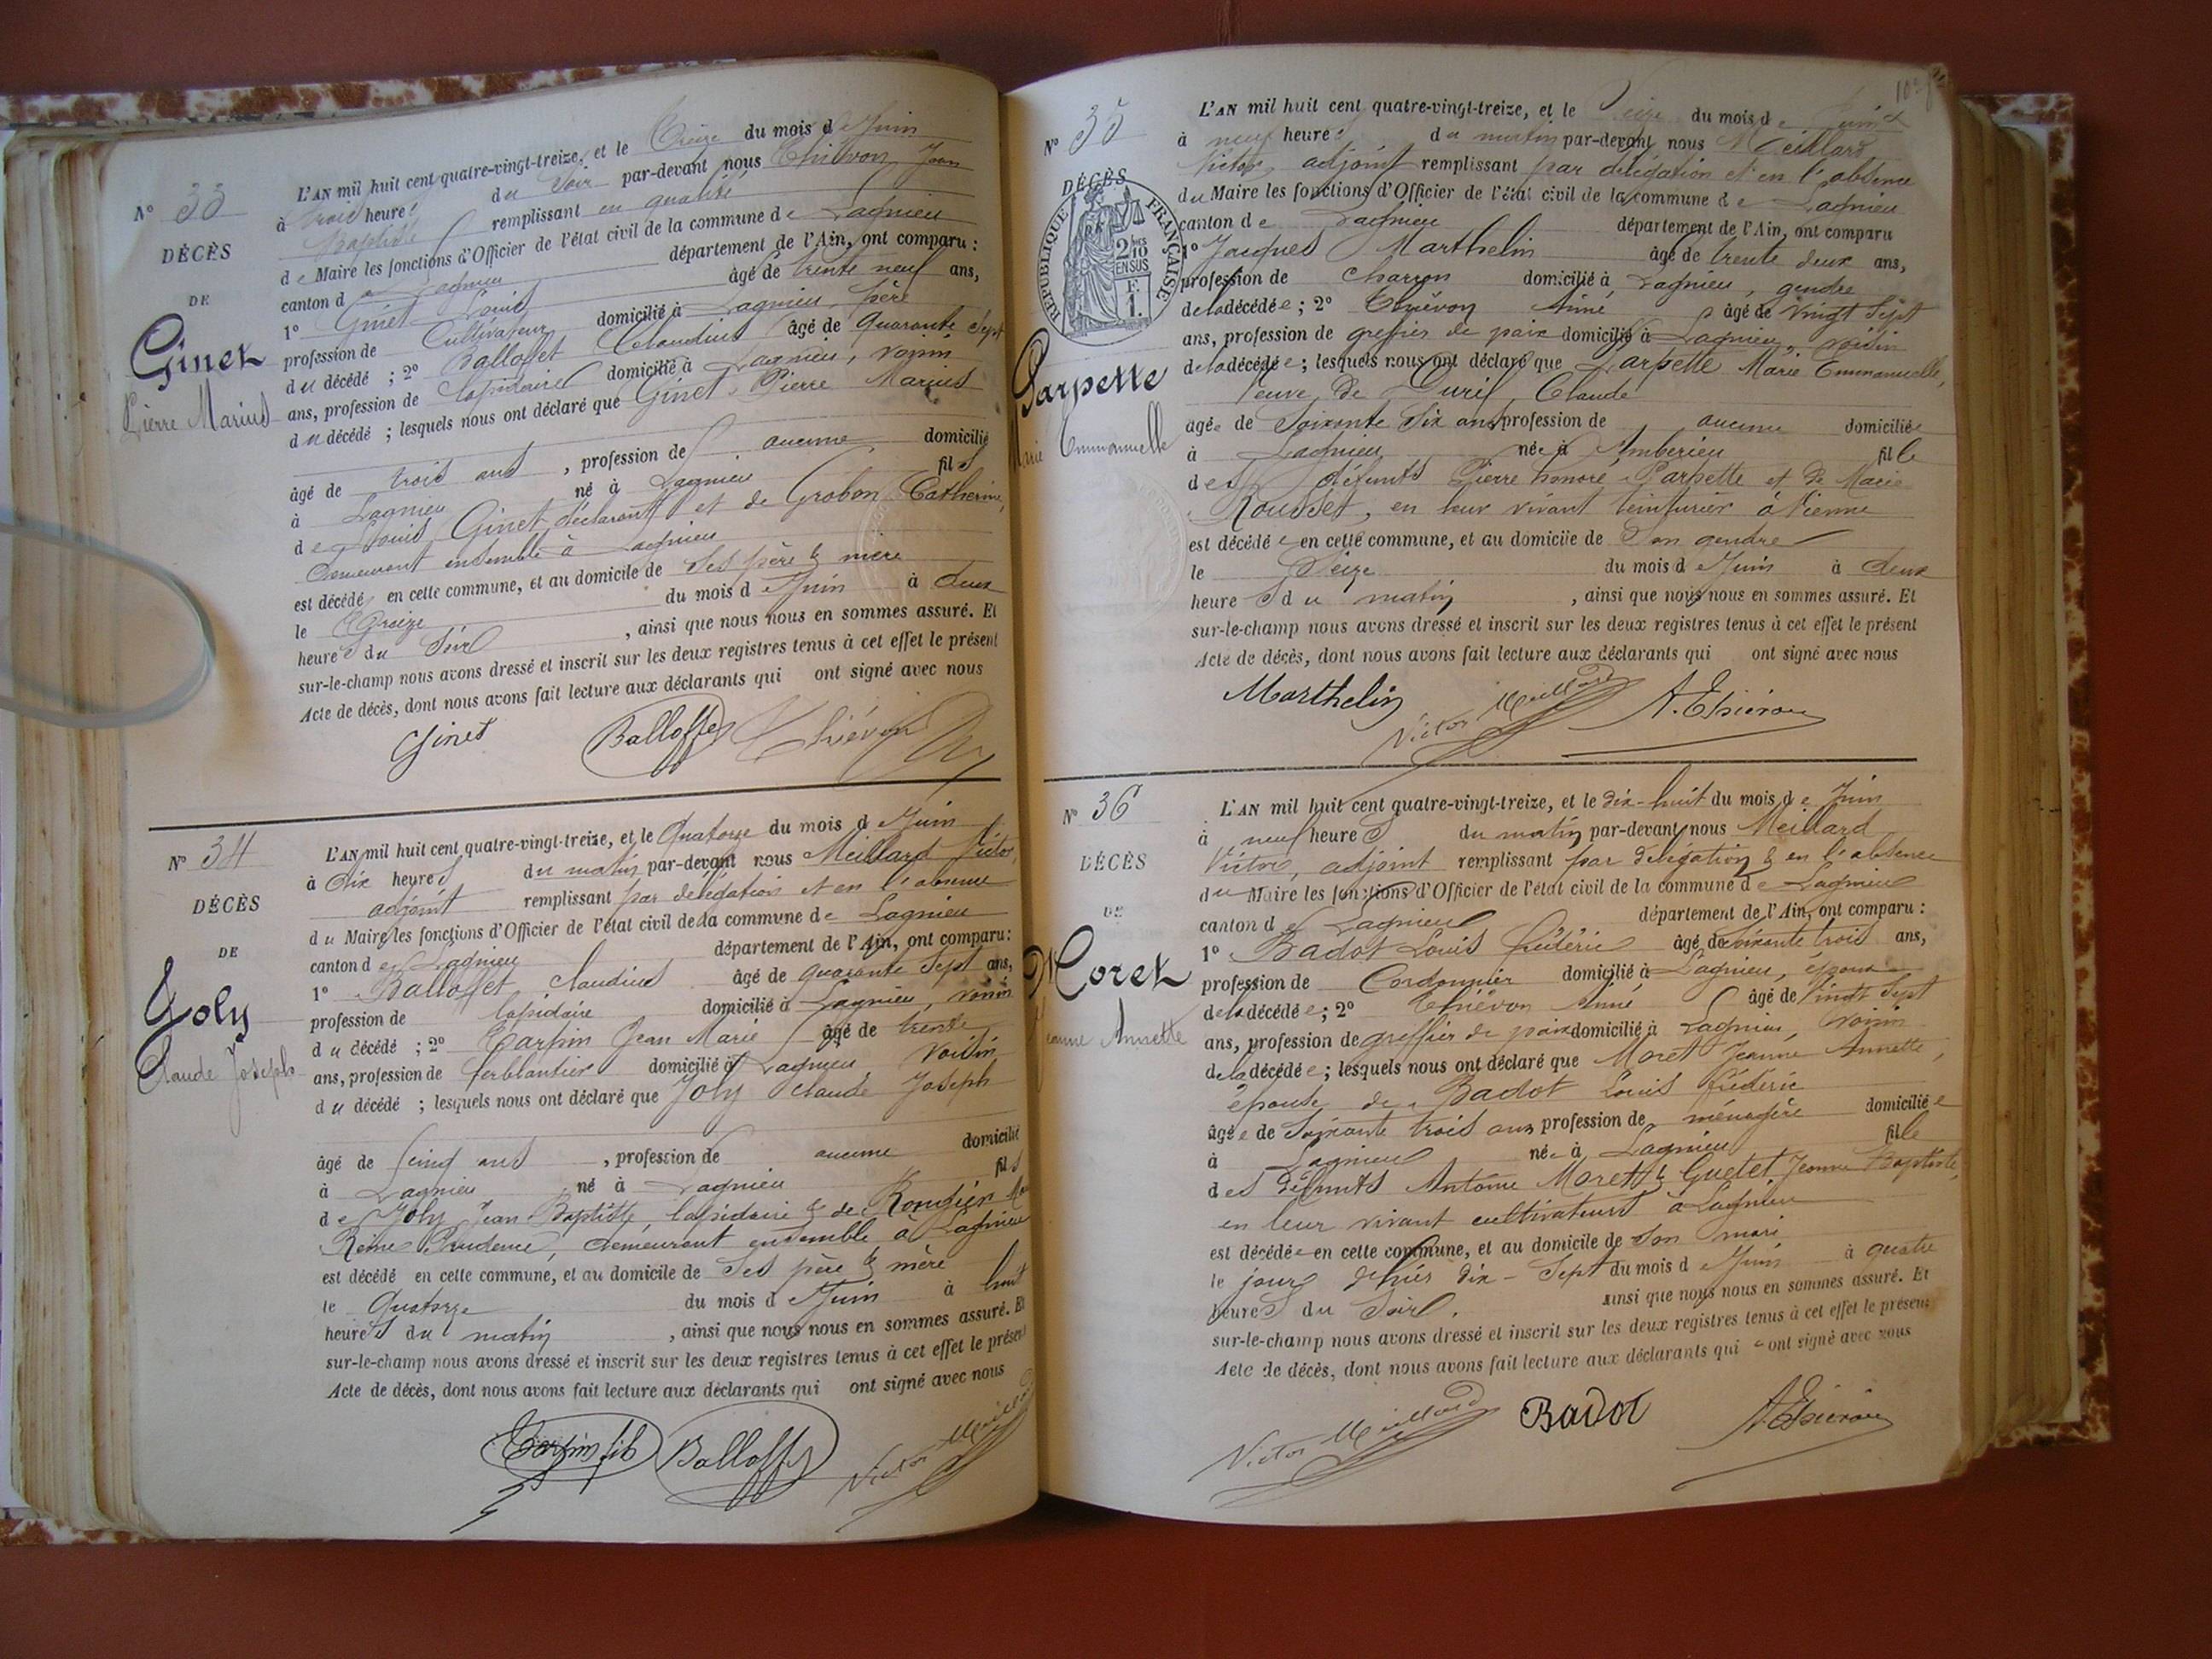 N° 33
DÉCÈS
DE
Ginet
Pierre Marius
L'AN mil huit cent quatre-vingt-treize, et le Treize du mois de Juin
à trois heures du Soir par-devant nous Thiévon Jean
Baptiste remplissant en qualité
de Maire les fonctions d'Officier de l'état civil de la commune de Lagnieu
canton de Lagnieu département de l'Ain, ont comparu :
1° Ginet Louis âgé de trente neuf ans,
profession de Cultivateur domicilié à Lagnieu, père
du décédé ; 2° Balloffet Claudius âgé de quarante sept
ans, profession de lapidaire domicilié à Lagnieu, voisin
du décédé ; lesquels nous ont déclaré que Ginet Pierre Marius
âgé de trois ans, profession de aucune domicilié
à Lagnieu né à Lagnieu fils
de Louis Ginet, déclarant et de Grobon Catherine,
demeurant ensemble à Lagnieu
est décédé en cette commune, et au domicile de Ses père & mère
le Treize du mois de Juin à deux
heures du Soir, ainsi que nous nous en sommes assuré. Et
sur-le-champ nous avons dressé et inscrit sur les deux registres tenus à cet effet le présent
Acte de décès, dont nous avons fait lecture aux déclarants qui ont signé avec nous
Ginet Balloffet Thiévon
N° 34
DÉCÈS
DE
Joly
Claude Joseph
L'AN mil huit cent quatre-vingt-treize, et le Quatorze du mois de Juin
à Dix heures du matin par-devant nous Meillard Victor,
adjoint remplissant par délégation et en l'absence
du Maire les fonctions d'Officier de l'état civil de la commune de Lagnieu
canton de Lagnieu département de l'Ain, ont comparu :
1° Balloffet Claudius âgé de quarante Sept ans,
profession de lapidaire domicilié à Lagnieu, voisin
du décédé ; 2° Tarpin Jean Marie âgé de trente
ans, profession de ferblantier domicilié à Lagnieu, voisin
du décédé ; lesquels nous ont déclaré que Joly Claude Joseph
âgé de Cinq ans, profession de aucune domicilié
à Lagnieu né à Lagnieu fils
de Joly Jean Baptiste, lapidaire & de Rongier
Reine Prudence, demeurant ensemble à Lagnieu
est décédé en cette commune, et au domicile de Ses père & mère
le Quatorze du mois de Juin à huit
heures du matin, ainsi que nous nous en sommes assuré. Et
sur-le-champ nous avons dressé et inscrit sur les deux registres tenus à cet effet le présent
Acte de décès, dont nous avons fait lecture aux déclarants qui ont signé avec nous
Tarpin fils Balloffet Victor Meillard
N° 35
DÉCÈS
RÉPUBLIQUE FRANÇAISE
2/10 EN SUS
F. 1.
Parpette
Marie Emmanuelle
L'AN mil huit cent quatre-vingt-treize, et le Seize du mois de Juin
à neuf heures du matin par-devant nous Meillard
Victor adjoint remplissant par délégation et en l'absence
du Maire les fonctions d'Officier de l'état civil de la commune de Lagnieu
canton de Lagnieu département de l'Ain, ont comparu
1° Jacques Marthelin âgé de trente deux ans,
profession de charron domicilié à Lagnieu, gendre
de la décédée ; 2° Thiévon Aimé âgé de vingt Sept
ans, profession de greffier de paix domicilié à Lagnieu, voisin
de la décédée ; lesquels nous ont déclaré que Parpette Marie Emmanuelle,
Veuve de Claude
âgée de Soixante Six ans profession de aucune domiciliée
à Lagnieu née à Ambérieu fille
des défunts Pierre honoré Parpette et de Marie
Rousset, en leur vivant teinturier à Vienne
est décédée en cette commune, et au domicile de Son gendre
le Seize du mois de Juin à deux
heures du matin, ainsi que nous nous en sommes assuré. Et
sur-le-champ nous avons dressé et inscrit sur les deux registres tenus à cet effet le présent
Acte de décès, dont nous avons fait lecture aux déclarants qui ont signé avec nous
Marthelin Victor Meillard A. Thiévon
N° 36
DÉCÈS
DE
Moret
Jeanne Annette
L'AN mil huit cent quatre-vingt-treize, et le dix-huit du mois de Juin
à neuf heures du matin par-devant nous Meillard
Victor, adjoint remplissant par délégation & en l'absence
du Maire les fonctions d'Officier de l'état civil de la commune de Lagnieu
canton de Lagnieu département de l'Ain, ont comparu :
1° Badot Louis Frédéric âgé de soixante trois ans,
profession de Cordonnier domicilié à Lagnieu, époux
de la décédée ; 2° Thiévon Aimé âgé de Vingt Sept
ans, profession de greffier de paix domicilié à Lagnieu, voisin
de la décédée ; lesquels nous ont déclaré que Moret Jeanne Annette,
épouse de Badot Louis Frédéric
âgée de Soixante trois ans profession de ménagère domiciliée
à Lagnieu née à Lagnieu fille
des défunts Antoine Moret & Guetet Jeanne Baptiste,
en leur vivant cultivateurs à Lagnieu
est décédée en cette commune, et au domicile de Son mari
le jour d'hier dix-Sept du mois de Juin à quatre
heures du Soir. ainsi que nous nous en sommes assuré. Et
sur-le-champ nous avons dressé et inscrit sur les deux registres tenus à cet effet le présent
Acte de décès, dont nous avons fait lecture aux déclarants qui ont signé avec nous
Victor Meillard Badot A. Thiévon